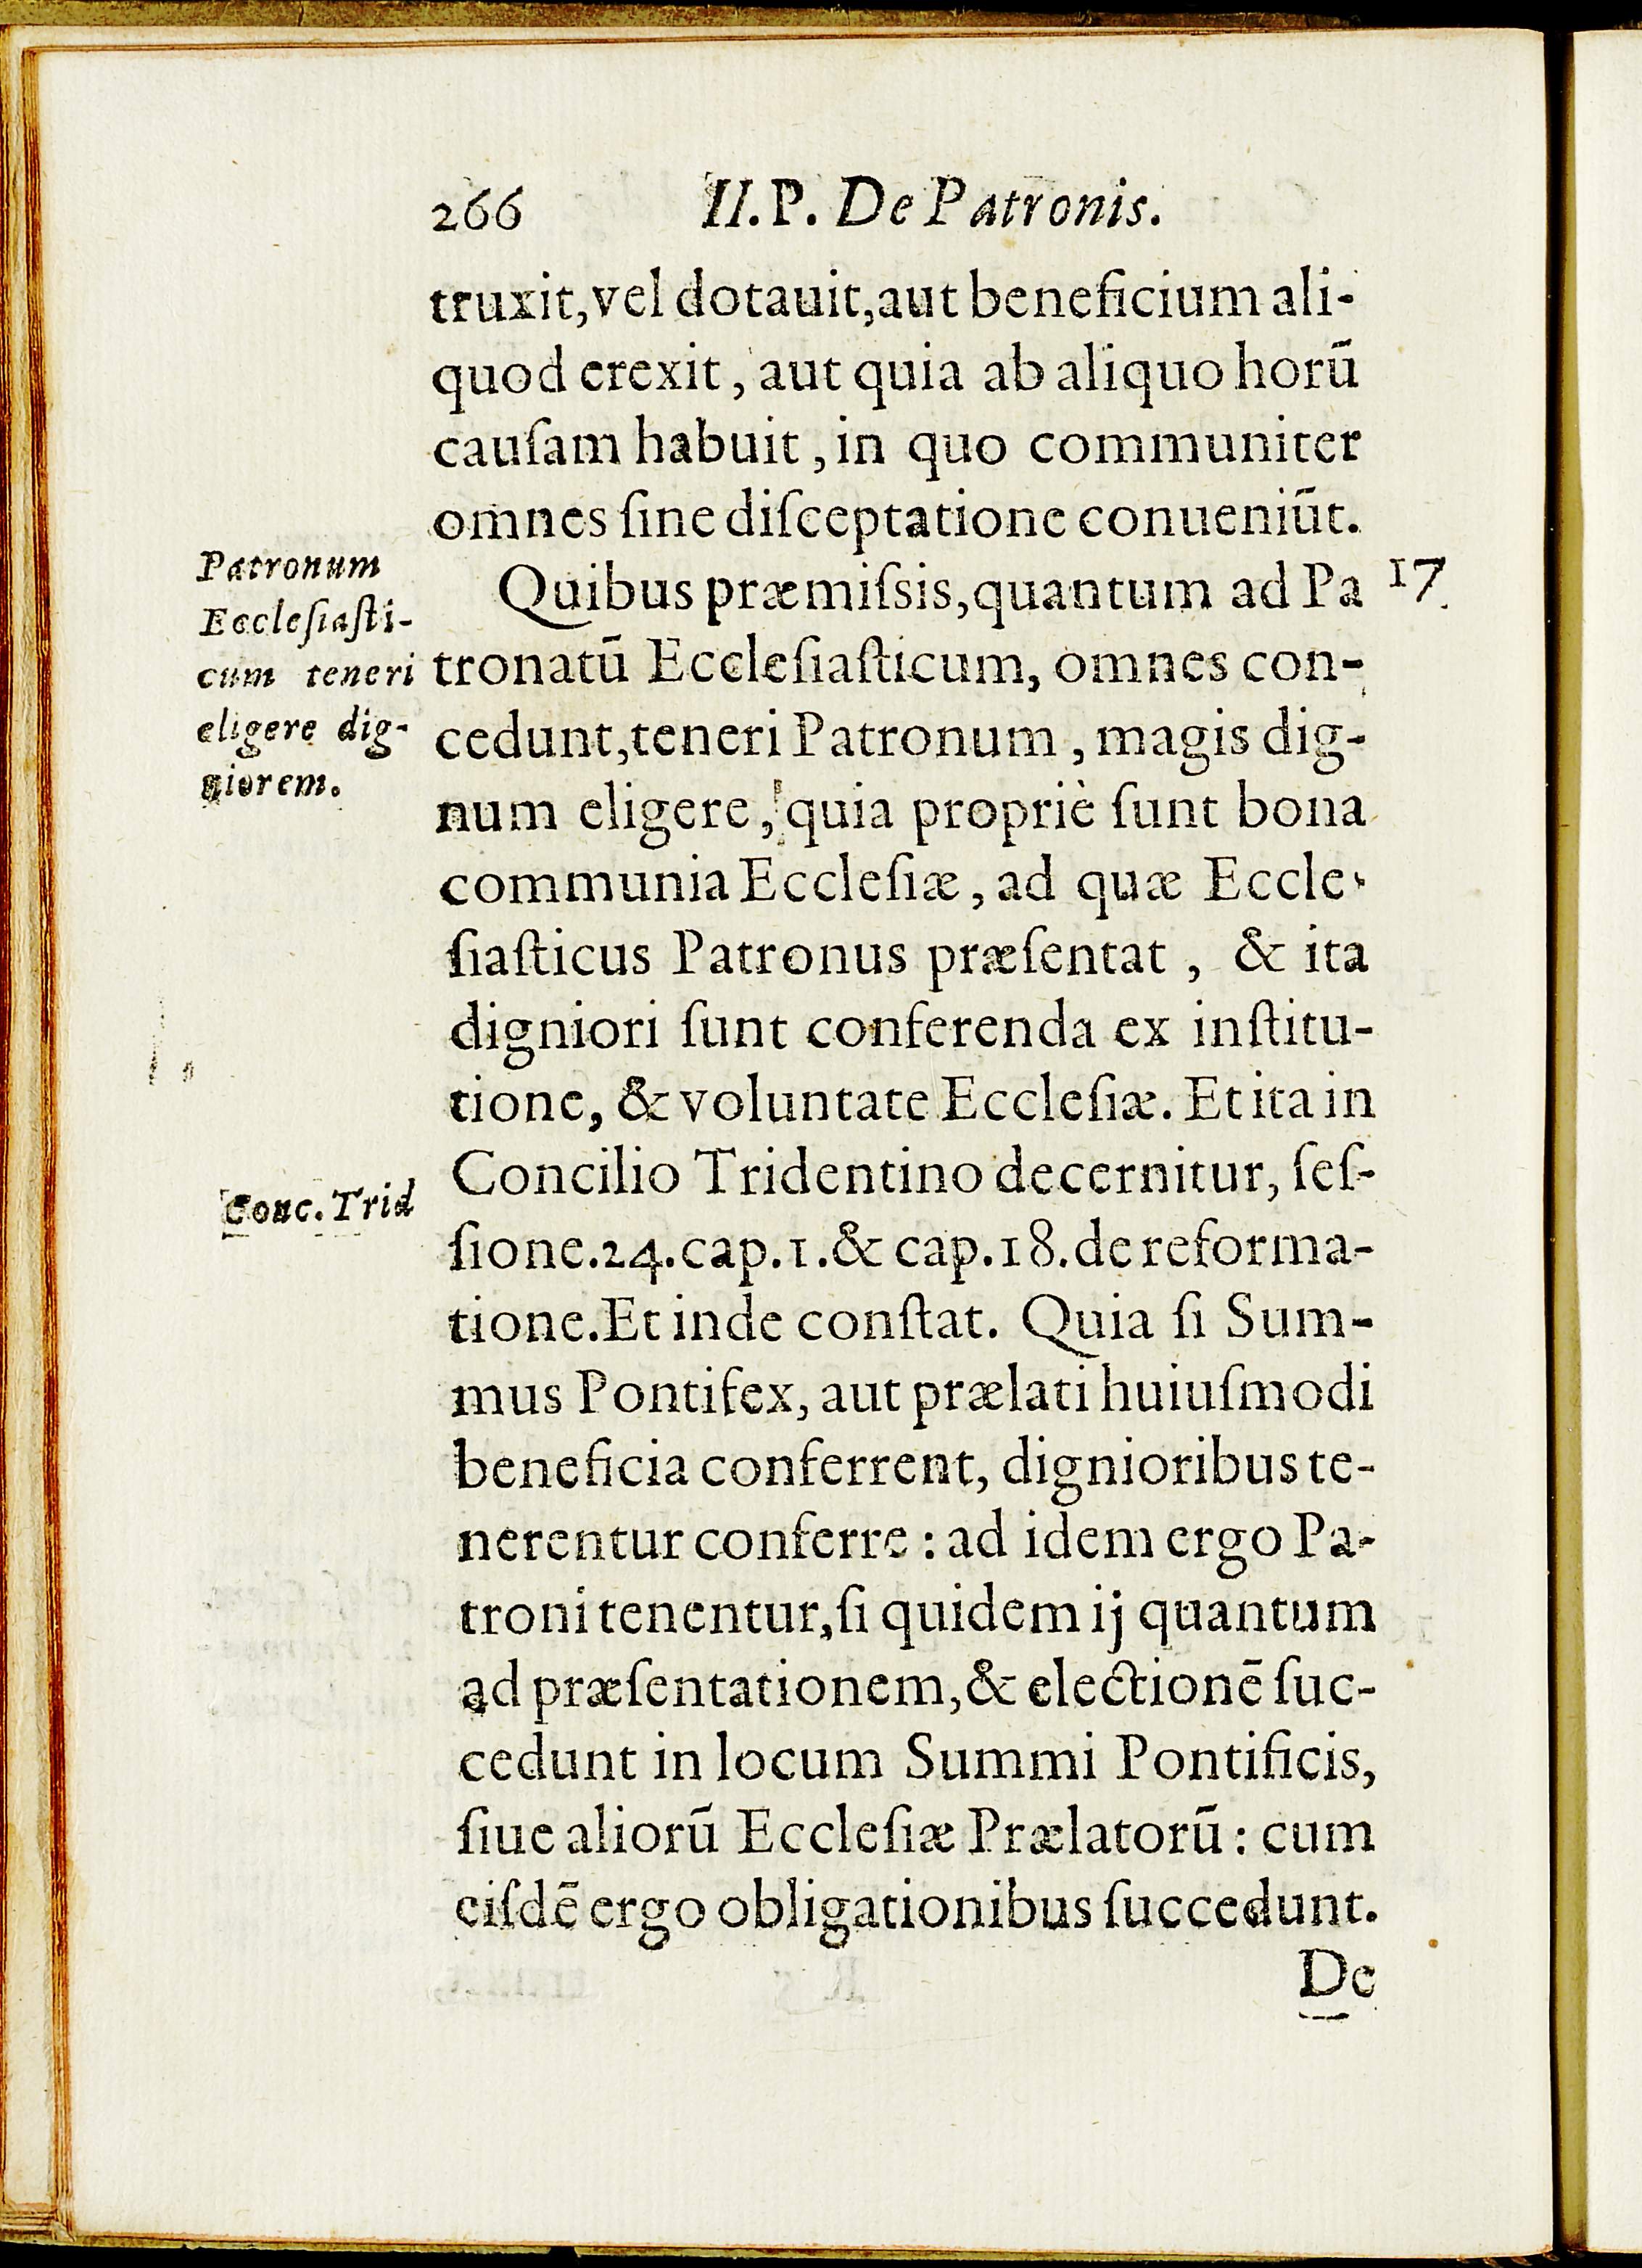 266 II.P. De Patronis.
truxit, vel dotauit, aut beneficium ali-
quod erexit, aut quia ab aliquo horū
cauſam habuit, in quo communiter
omnes ſine diſceptatione conueniūt.
Patronum
Eccleſiaſti-
cum teneri
eligere dig-
niorem.
Quibus præmiſsis, quantum ad Pa 17
tronatū Eccleſiaſticum, omnes con-
cedunt, teneri Patronum, magis dig-
num eligere, quia propriè ſunt bona
communia Eccleſiæ, ad quæ Eccle-
ſiaſticus Patronus præſentat, & ita
digniori ſunt conferenda ex inſtitu-
tione, & voluntate Eccleſiæ. Et ita in
Conc. Trid
Concilio Tridentino decernitur, ſeſ-
ſione.24.cap.1.& cap.18.de reforma-
tione.Et inde conſtat. Quia ſi Sum-
mus Pontifex, aut prælati huiuſmodi
beneficia conferrent, dignioribus te-
nerentur conferre : ad idem ergo Pa-
troni tenentur, ſi quidem ij quantum
ad præſentationem, & electionē ſuc-
cedunt in locum Summi Pontificis,
ſiue aliorū Eccleſiæ Prælatorū : cum
eiſdē ergo obligationibus ſuccedunt.
De